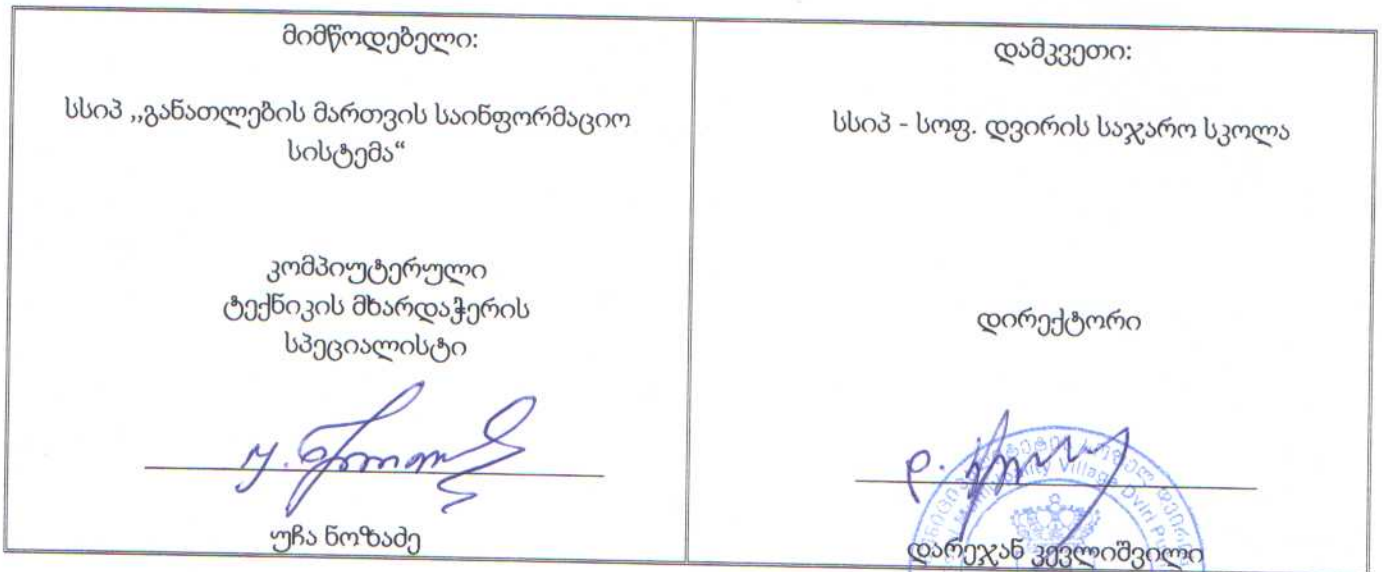 მიმწოდებელი:
სსიპ ,,განათლების მართვის საინფორმაციო
სისტემა“
კომპიუტერული
ტექნიკის მხარდაჭერის
სპეციალისტი
უჩა ნოზაძე
დამკვეთი:
სსიპ - სოფ. დვირის საჯარო სკოლა
დირექტორი
Municipality Village Dviri
დარეჯან კევლიშვილი